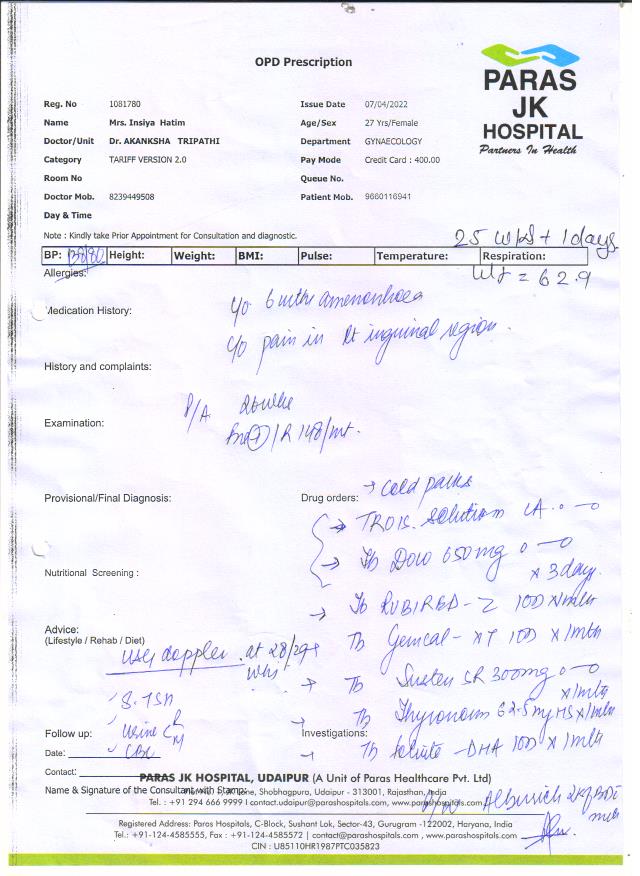 OPD Prescription
PARAS
JK
HOSPITAL
Partners In Health
Reg. No 1081780 Issue Date 07/04/2022
Name Mrs. Insiya Hatim Age/Sex 27 Yrs/Female
Doctor/Unit Dr. AKANKSHA TRIPATHI Department GYNAECOLOGY
Category TARIFF VERSION 2.0 Pay Mode Credit Card : 400.00
Room No Queue No.
Doctor Mob. 8239449508 Patient Mob. 9660116941
Day & Time
Note : Kindly take Prior Appointment for Consultation and diagnostic.
25 wks + 1 days
BP: Height: Weight: BMI: Pulse: Temperature: Respiration:
Allergies: wt = 62.9
Medication History: c/o 6 mths amenorrhoea
c/o pain in Lt inguinal region.
History and complaints:
P/A 26 wks
Examination:
148/mt.
Provisional/Final Diagnosis: Drug orders: → Cold packs
→ TROIS solution LA. o—o
→ Tb Dolo 650mg o—o
x 3 days.
Nutritional Screening :
→ Tb RUBIRED-Z 1OD x 1mth
Advice:
(Lifestyle / Rehab / Diet)
Tb Gemcal-XT 1OD x 1mth
USG doppler at 28/29
wks
→ Tb Susten SR 300mg o—o
x 1mth
S. TSH
→ Tb Thyronorm 62.5mg x 1mth
Follow up: Urine C R
M
Investigations:
→ Tb -DHA 1OD x 1mth
Date: CBC
Contact:
PARAS JK HOSPITAL, UDAIPUR (A Unit of Paras Healthcare Pvt. Ltd)
Name & Signature of the Consultant with Stamp:
Shobhagpura, Udaipur - 313001, Rajasthan, India
Tel. : +91 294 666 9999 I contact.udaipur@parashospitals.com, www.parashospitals.com
Registered Address: Paras Hospitals, C-Block, Sushant Lok, Sector-43, Gurugram -122002, Haryana, India
Tel.: +91-124-4585555, Fax : +91-124-4585572 | contact@parashospitals.com , www.parashospitals.com
CIN : U85110HR1987PTC035823